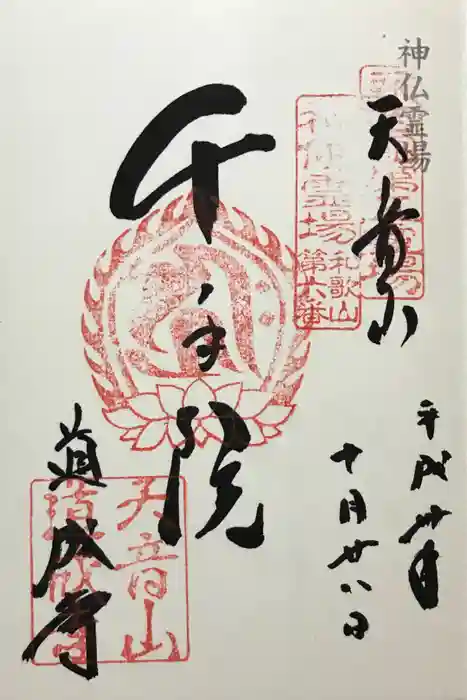 神仏霊場
天音山
平成卅年
十月廿八日
神仏霊場
和歌山
第六番
千手院
道成寺
天音山
道成寺